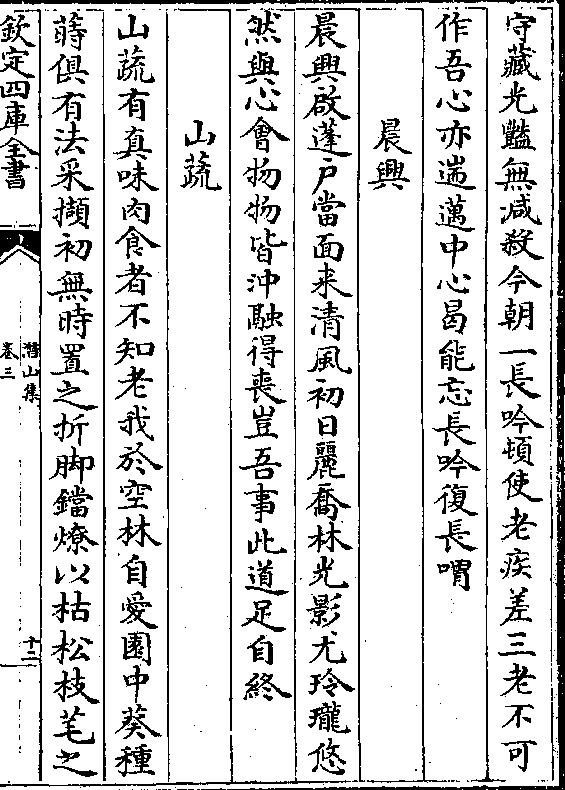 守藏光豔無减殺今朝一長吟頓使老疾差三老不可
作吾心亦遄邁中心曷能忘長吟復長喟
晨興
晨興啟蓬户當面来清風初日麗喬林光影尤玲瓏悠
然與心會物物皆沖融得喪豈吾事此道足自終
山蔬
山蔬有真味肉食者不知老我於空林自愛園中葵種
蒔俱有法采擷初無時置之折脚鐺燎以枯松枝芼之
欽定四庫全書
潛山集
卷三
十二